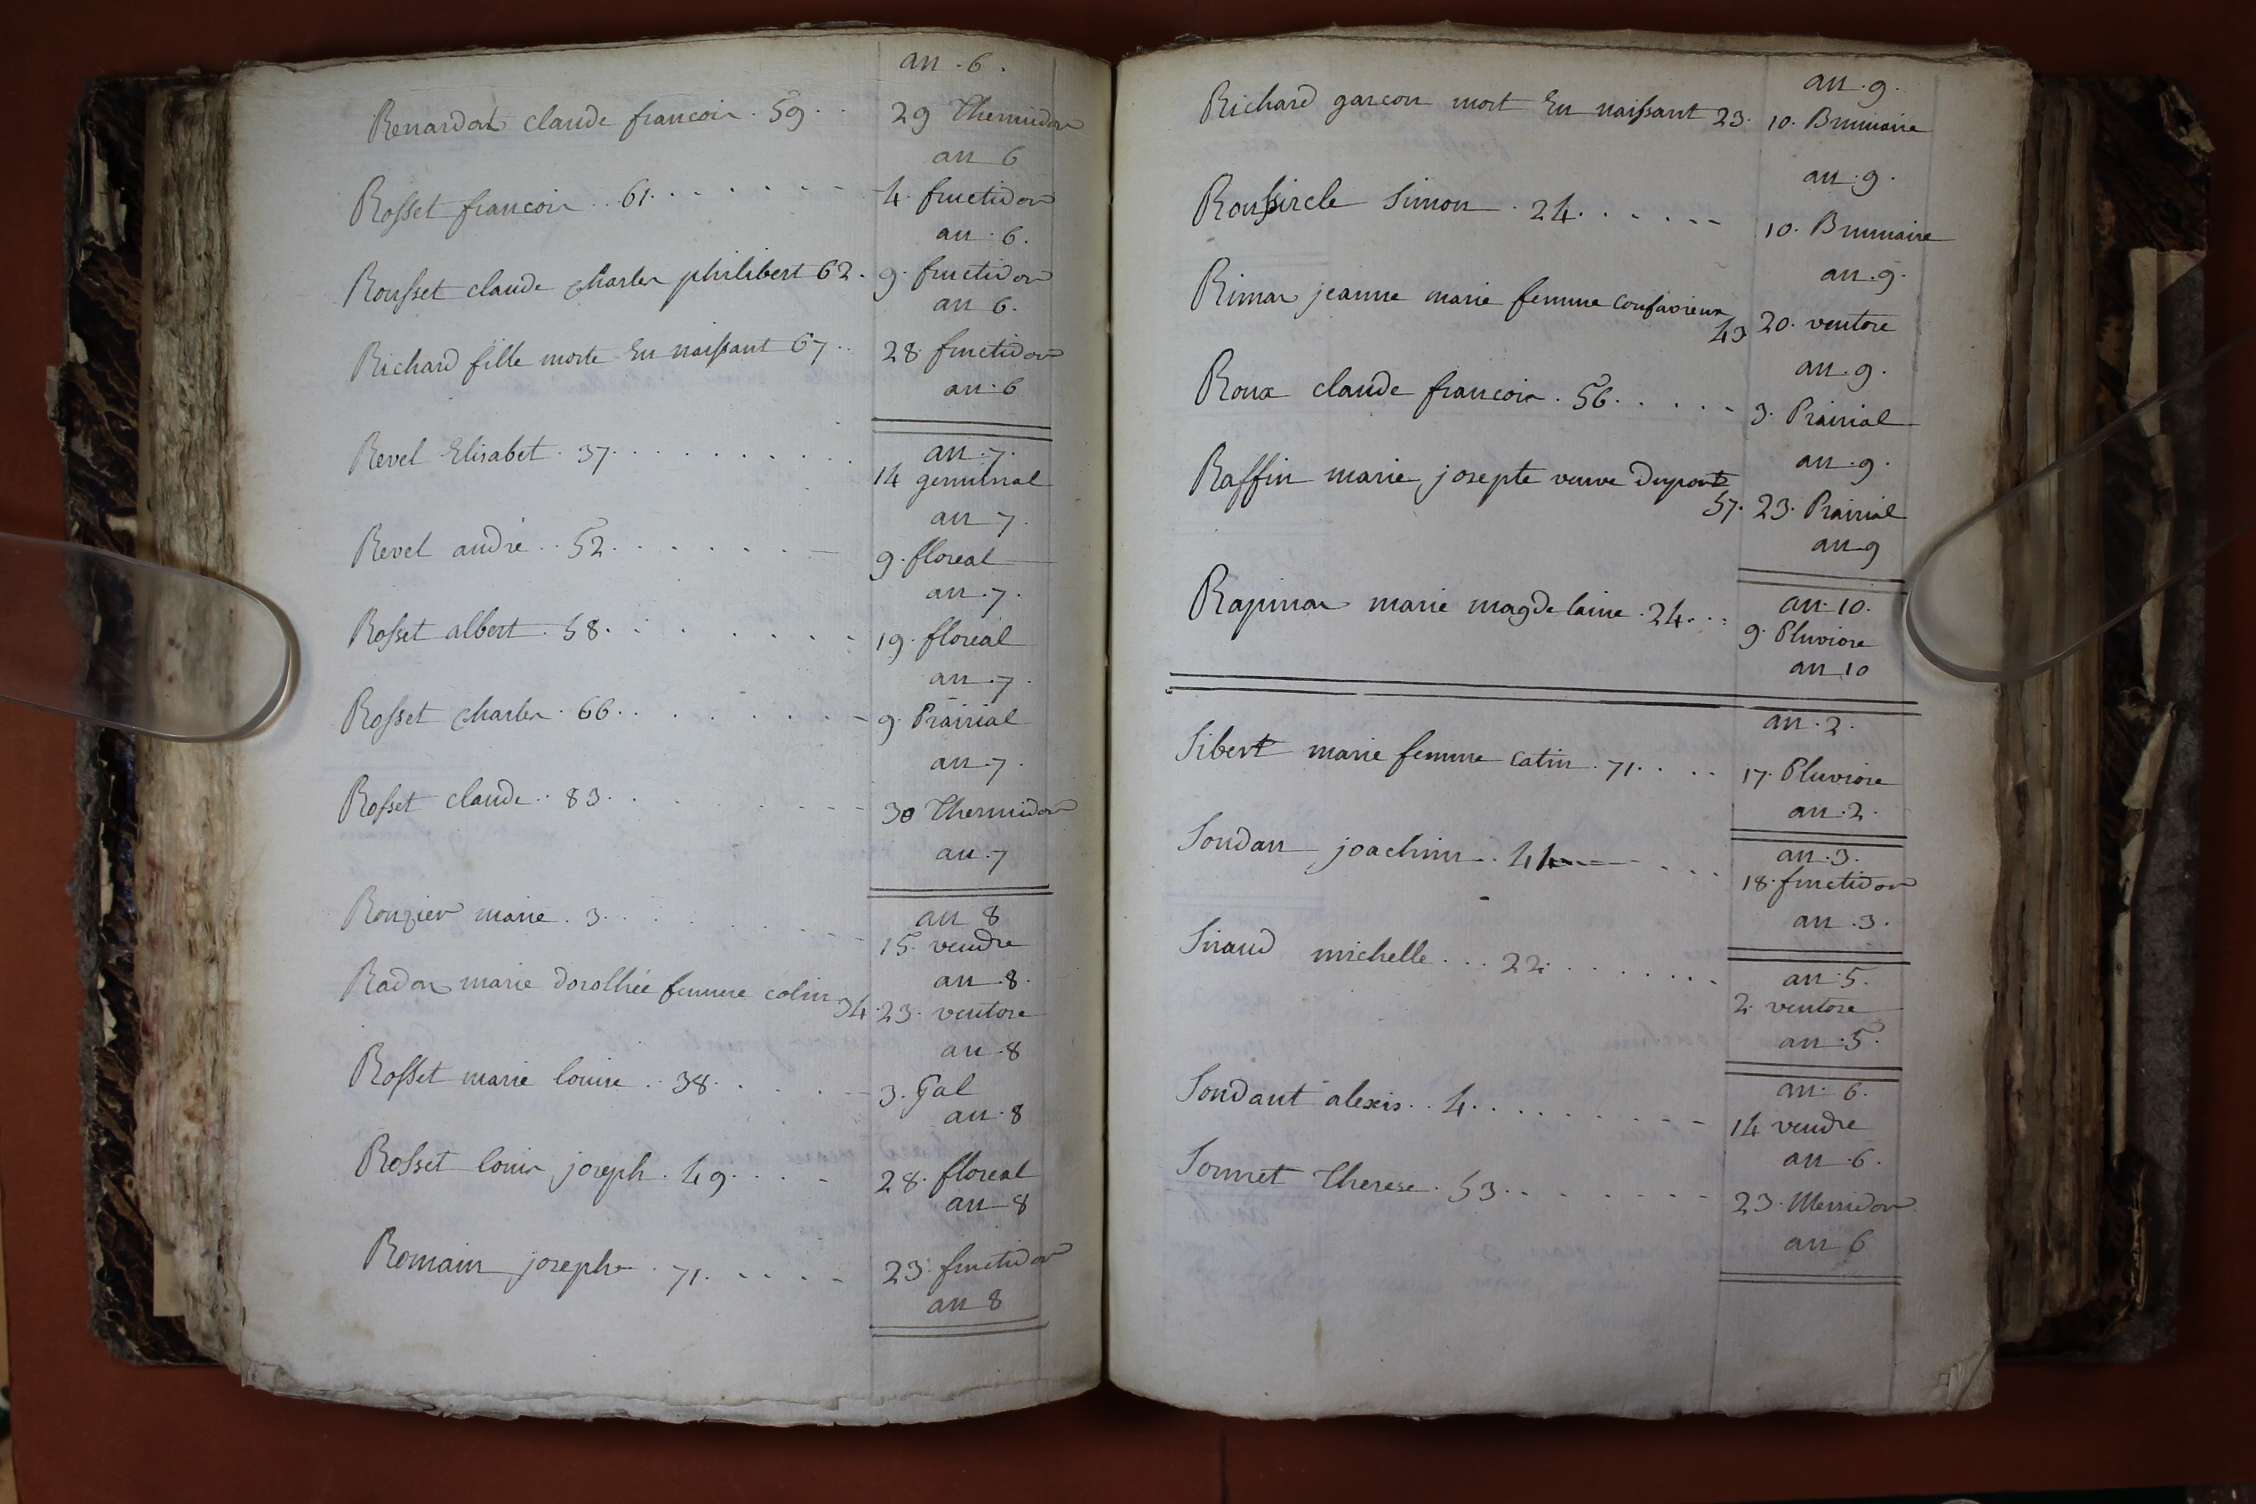 an . 6 .
Renardot claude francois . 59 . . 29 Thermidor
an 6
Rosset francois . . 61 . . . . . . . 4 . fructidor
an . 6 .
Rousset claude charles philibert 62 . 9 . fructidor
an 6 .
Richard fille morte En naissant 67 . . 28 . fructidor
an . 6
an . 7 .
Revel Elisabet . 37 . . . . . . . . . 14 germinal
an 7 .
Revel andré . . 52 . . . . . . . 9 . floreal
an . 7 .
Rosset albert . 58 . . . . . . . . 19 . floreal
an . 7 .
Rosset charles . 66 . . . . . . . . 9 . Prairial
an . 7 .
Rosset claude . . 83 . . . . . . . 30 Thermidor
an . 7
an 8
Rouzier marie . 3 . . . . . . . 15 . vendre
an . 8 .
Radon marie dorothée femme colin 34 . 23 . ventose
an . 8
Rosset marie louise . . 38 . . . . . 3 . Gal
an . 8
Rosset louis joseph . 49 . . . . 28 . floreal
an 8
Romain joseph . 71 . . . . . 23 . fructidor
an 8
an . 9 .
Richard garcon mort En naissant 23 . 10 . Brumaire
an . 9 .
Simon . 24 . . . . . . 10 . Brumaire
an . 9 .
Rimas jeanne marie femme
43 20 . ventose
an . 9 .
Roux claude francois . 56 . . . . . 3 . Prairial
an . 9 .
Raffin marie josepte veuve Dupont
57 . 23 . Prairial
an 9
an . 10 .
marie magdelaine . 24 . . . 9 . Pluviose
an 10
an . 2 .
Sibert marie femme catin . 71 . . . . 17 . Pluviose
an . 2 .
an . 3 .
Soudan joachim . . 44 . . . 18 . fructidor
an . 3 .
an . 5 .
Siraud michelle . . . 22 . . . . . . . 2 . ventose
an . 5 .
an . 6 .
Soudant alexis . . 4 . . . . . . . . . 14 vendre
an . 6 .
Sonnet Therese . 53 . . . . . . . . 23 . Messidor
an 6